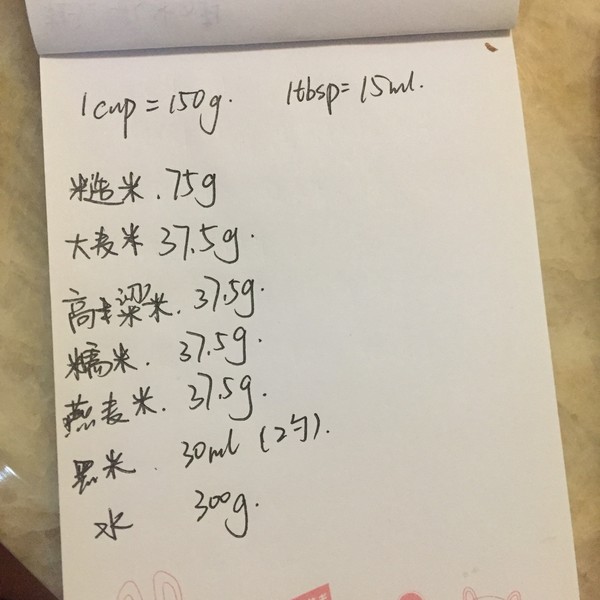 1 cup = 150g. 1tbsp = 15ml.
糙米. 75g
大麦米 37.5g.
高粱米. 37.5g.
糯米. 37.5g.
燕麦米. 37.5g.
黑米. 30ml (2勺).
水 300g.